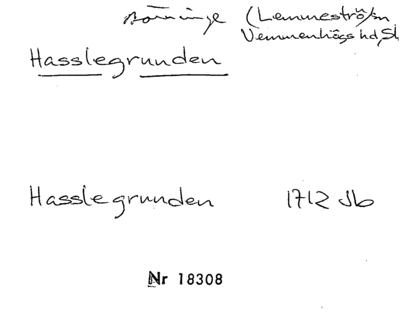 Börringe (Lemmeströ/m
Vemmenhögs hd, Sk
Hasslegrunden
Hasslegrunden 1712 Jb
Nr 18308